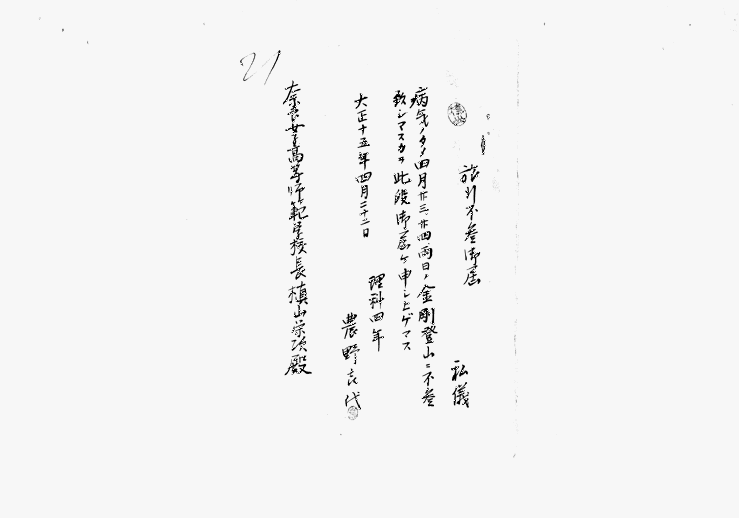 旅行不参御届
私儀
病気ノタメ四月廿三、廿四、両日ノ金剛登山ニ不参
致シマスカラ此段御届ケ申シ上ゲマス
大正十五年四月二十二日
理科四年
農野良代
奈良女子高等師範学校長槙山栄次殿
21